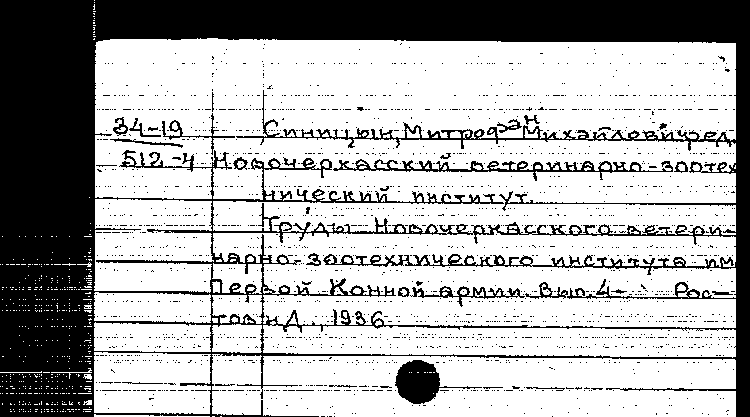 34-19 Синицын, Митрофан Михайлевич, ред.
512-4 Новочеркасский ветеринарно-зоотех
нический институт.
Труды Новочеркасского ветери-
нарно-зоотехнического института им
Первой Конной армии. Вып. 4- Рос-
тов н Д., 1936.